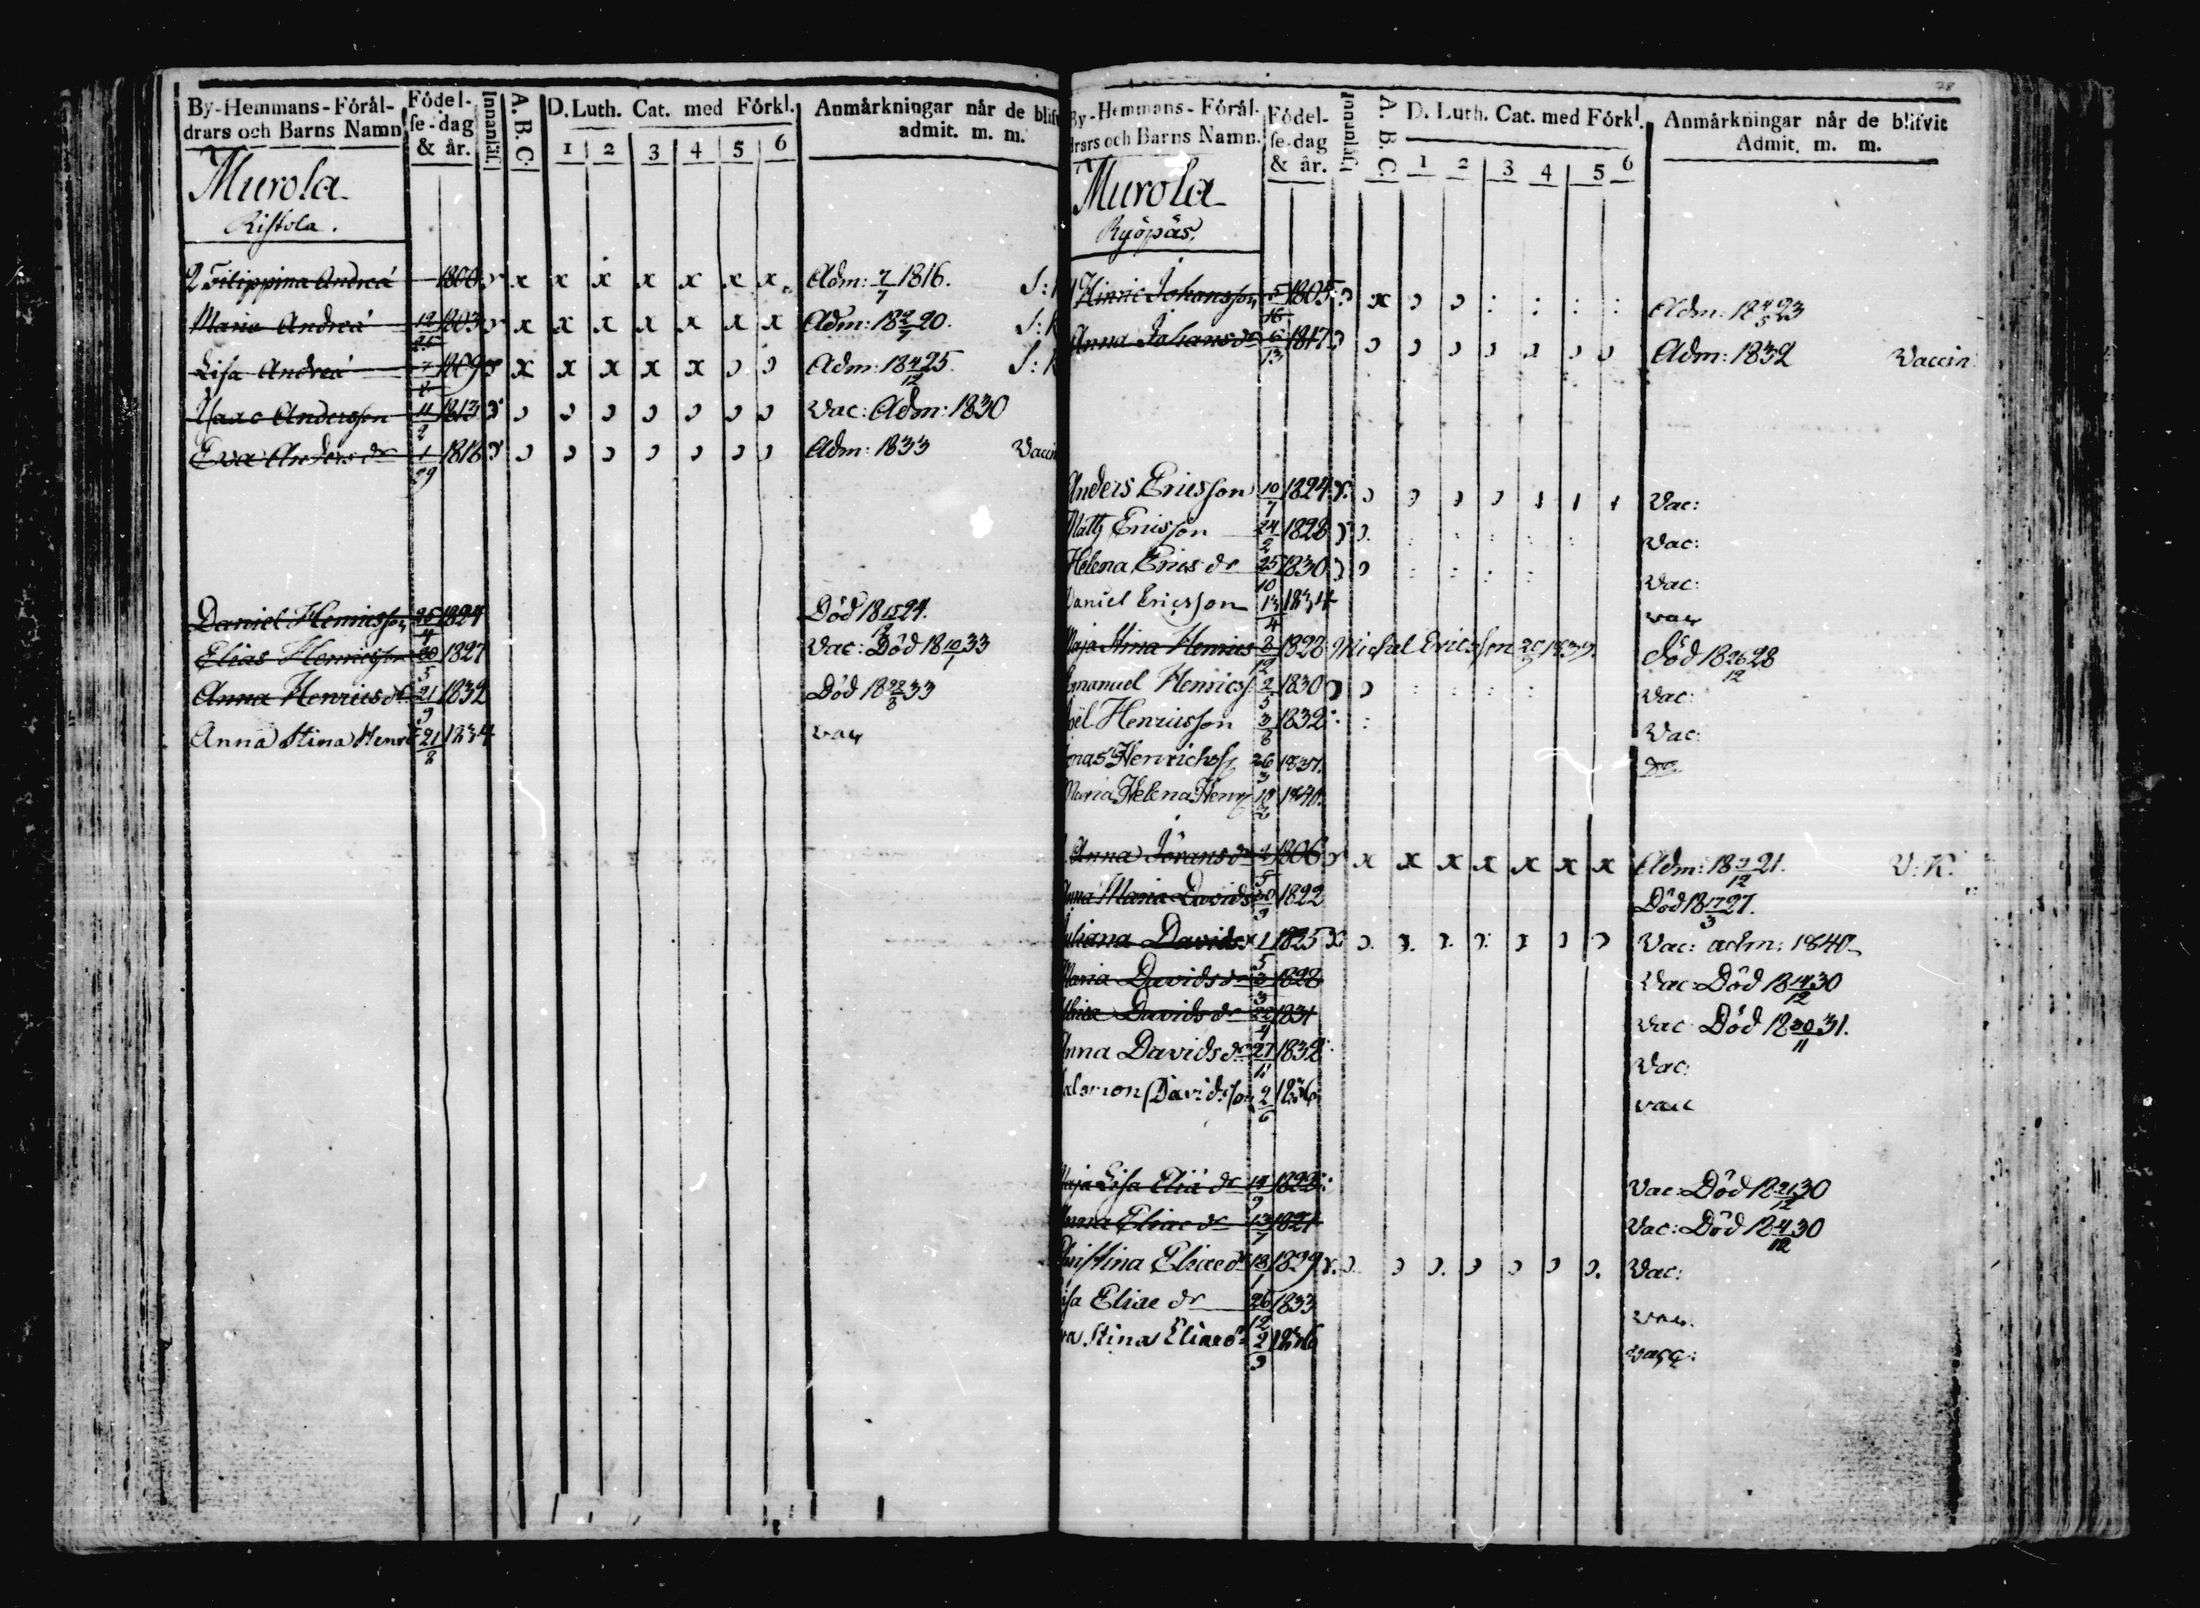 By-Hemmans-Förål-
drars och Barns Namn
Födel-
se-dag
& år.
Innanläs.
A. B. C.
D. Luth. Cat. med Förkl.
1 2 3 4 5 6
Anmårkningar når de blifv
admit. m. m.
Murola
Ristola.
2 Filippina Andreä 1800 x x x x x x x Adm: 7/7 1816.
Maria Andreä 12/25 1803 x x x x x x x Adm: 18 2/7 20.
Lisa Andreä 1809 x x x x x Adm: 18 4/12 25.
Isaac Andersson 11/2 1813 Vac: Adm: 1830
Eva Anders dr 1/29 1816 Adm: 1833 Vaccin
Daniel Henricsson 1824 Död 18 24.
Elias Henricsson 1827 Vac: Död 18 10/1 33
Anna Henrics dr 21/9 1832 Död 18 33
Anna Stina Henr 21/2 1834 vac
78
By-Hemmans-Förål-
drars och Barns Namn.
Födel-
se-dag
& år.
Innanläs.
A. B. C.
D. Luth. Cat. med Förkl.
1 2 3 4 5 6
Anmårkningar når de blifvit
Admit. m. m.
Murola
Ryöpäs.
Hinric Johansson 5/16 1805 x Adm: 18 4/5 23
Anna Johans dr 6/13 1817 Adm: 1832 Vaccin.
Anders Ericsson 10/7 1824 Vac:
Math Ericsson 24/2 1828 Vac:
Helena Erics dr 25/10 1830 Vac:
Daniel Ericsson 13/4 1834 vac
Maja Stina Henrics 8/12 1828 Michel Ericsson Död 18 26/12 28
Emanuel Henricss 2/5 1830 Vac:
Joël Henricsson 3/8 1832 Vac:
Jonas Henrichss 26/3 1837.
Maria Helena Henr 18/2 1840.
Anna Jörans dr 1806 x x x x x x x Adm: 18 2/12 21. V: K.
Anna Maria Davids 30/9 1822 Död 18 17/3 27.
Juliana Davids 1/5 1825 Vac: adm: 1840
Maria Davids dr 3/3 1828 Vac: Död 18 14/12 30
Davids dr 22/4 1831 Vac Död 18 30/11 31.
Anna Davids dr 27/11 1832 Vac:
Salomon Davidsson 2/6 1836 vacc
Maja Lisa Eliä dr 14/9 1822 Vac: Död 18 21/12 30
Anna Eliae dr 13/1 1824 Vac: Död 18 4/12 30
Christina Eliae dr 18/1 1829 Vac:
Lisa Eliae dr 26/12 1833 vac.
Eva Stina Eliae dr 2/9 1836 vacc: